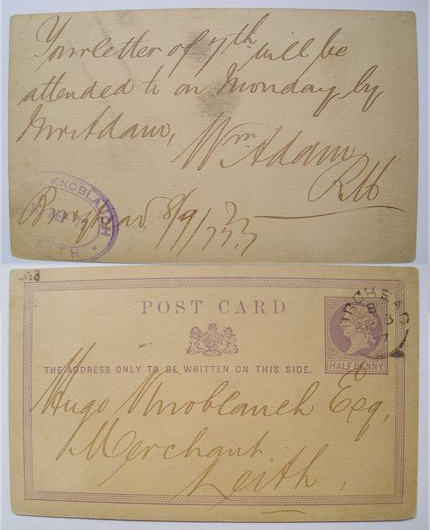 Your letter of 7th will be
attended to on Monday by
Mr Adam,
Wm Adam
KNOBLAUCH
LEITH
8/9/77
POST CARD
THE ADDRESS ONLY TO BE WRITTEN ON THIS SIDE.
HALFPENNY
Hugo Knoblauch Esq,
Merchant
Leith.